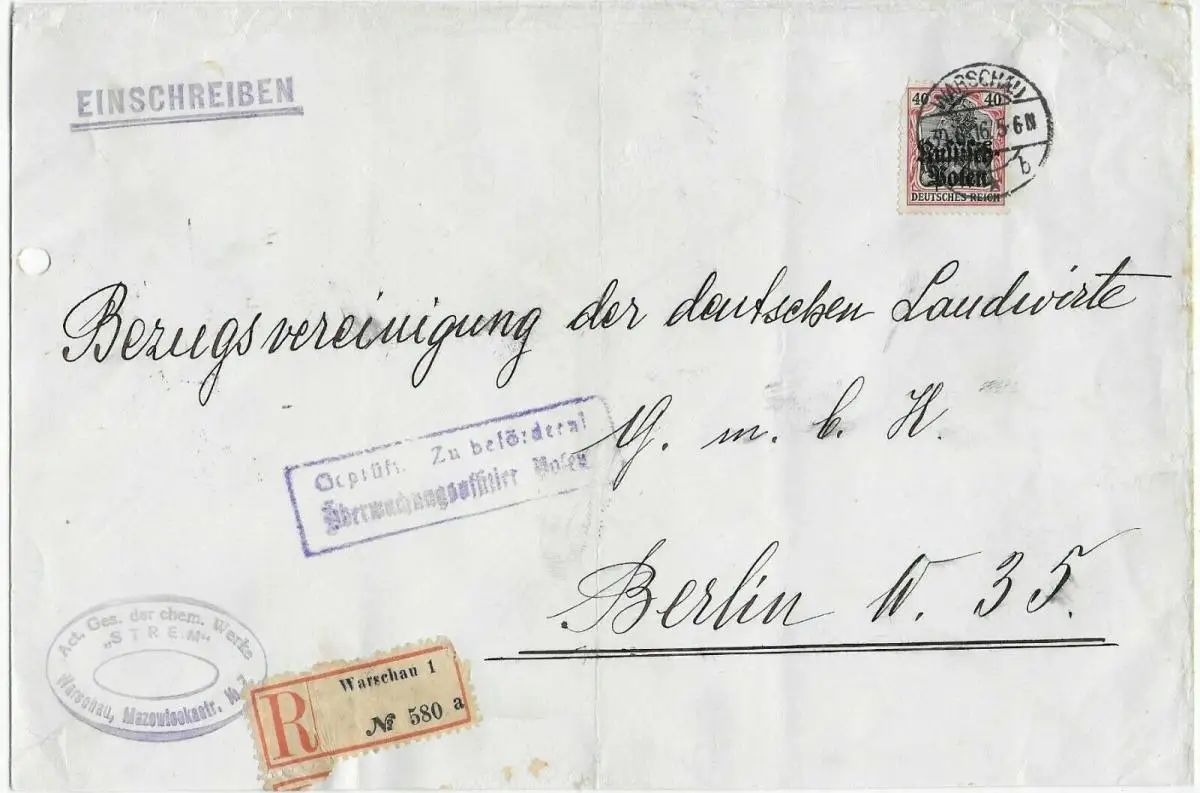 EINSCHREIBEN
40 40
WARSCHAU
16 5-6 N
b
Russisch-
Polen
DEUTSCHES REICH
Bezugsvereinigung der deutschen Landwirte
G. m. b. H.
Geprüft. Zu befördern!
Überwachungsoffizier Posen
Berlin W. 35.
Act. Ges. der chem. Werke
„STREM“
Warschau, Mazowieckastr. № 7
R
Warschau 1
№ 580 a